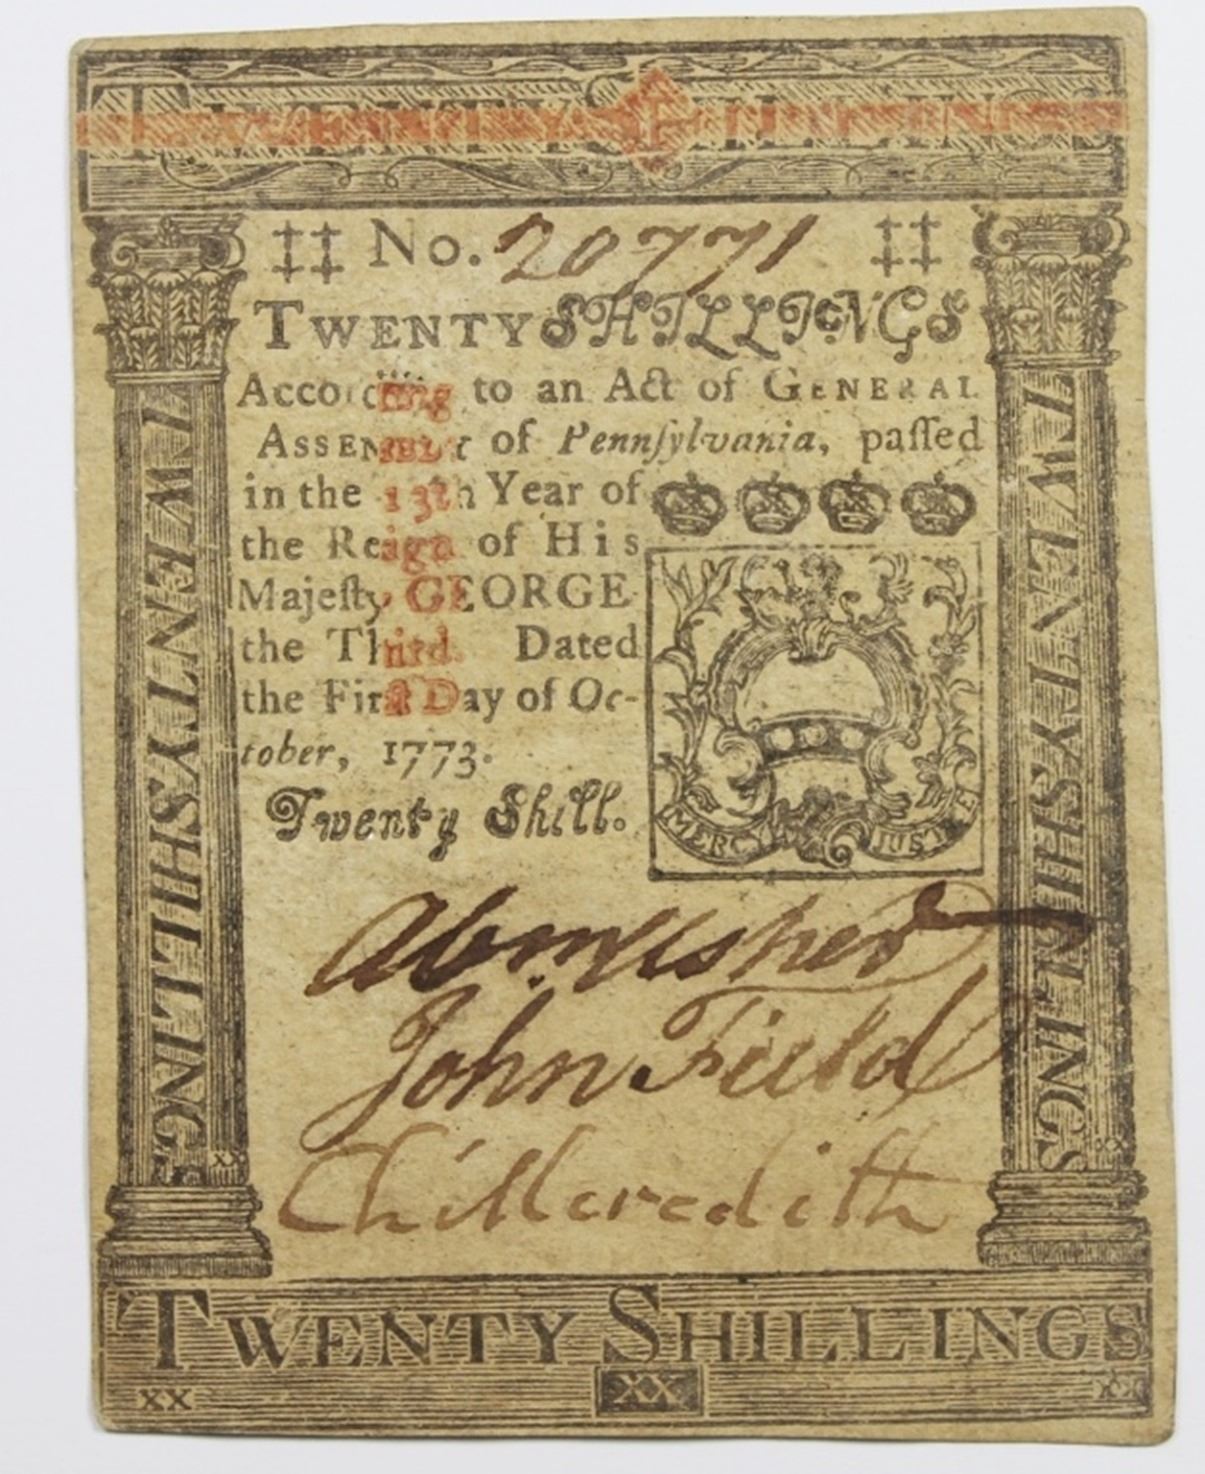 TWENTY SHILLINGS
‡‡ No. 20771 ‡‡
TWENTY SHILLINGS
According to an Act of GENERAL
ASSEMBLY of Pennſylvania, paſſed
in the 13th Year of
the Reign of His
Majeſty GEORGE
the Third. Dated
the Firſt Day of Oc-
tober, 1773.
Twenty Shill.
MERCY JUSTICE
TWENTY SHILLINGS
TWENTY SHILLINGS
John Field
Ch Meredith
XX XX
TWENTY SHILLINGS
XX XX XX